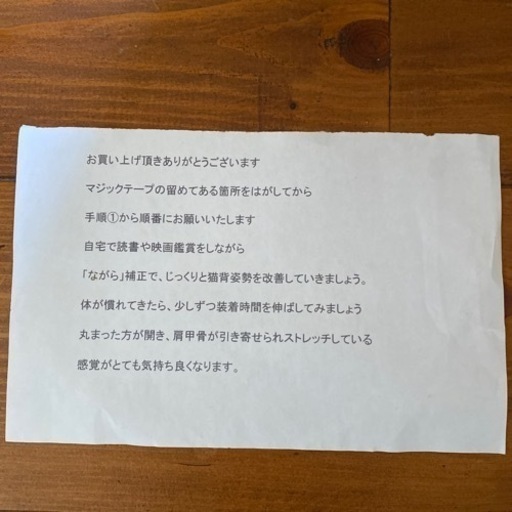 お買い上げ頂きありがとうございます
マジックテープの留めてある箇所をはがしてから
手順①から順番にお願いいたします
自宅で読書や映画鑑賞をしながら
「ながら」補正で、じっくりと猫背姿勢を改善していきましょう。
体が慣れてきたら、少しずつ装着時間を伸ばしてみましょう
丸まった方が開き、肩甲骨が引き寄せられストレッチしている
感覚がとても気持ち良くなります。